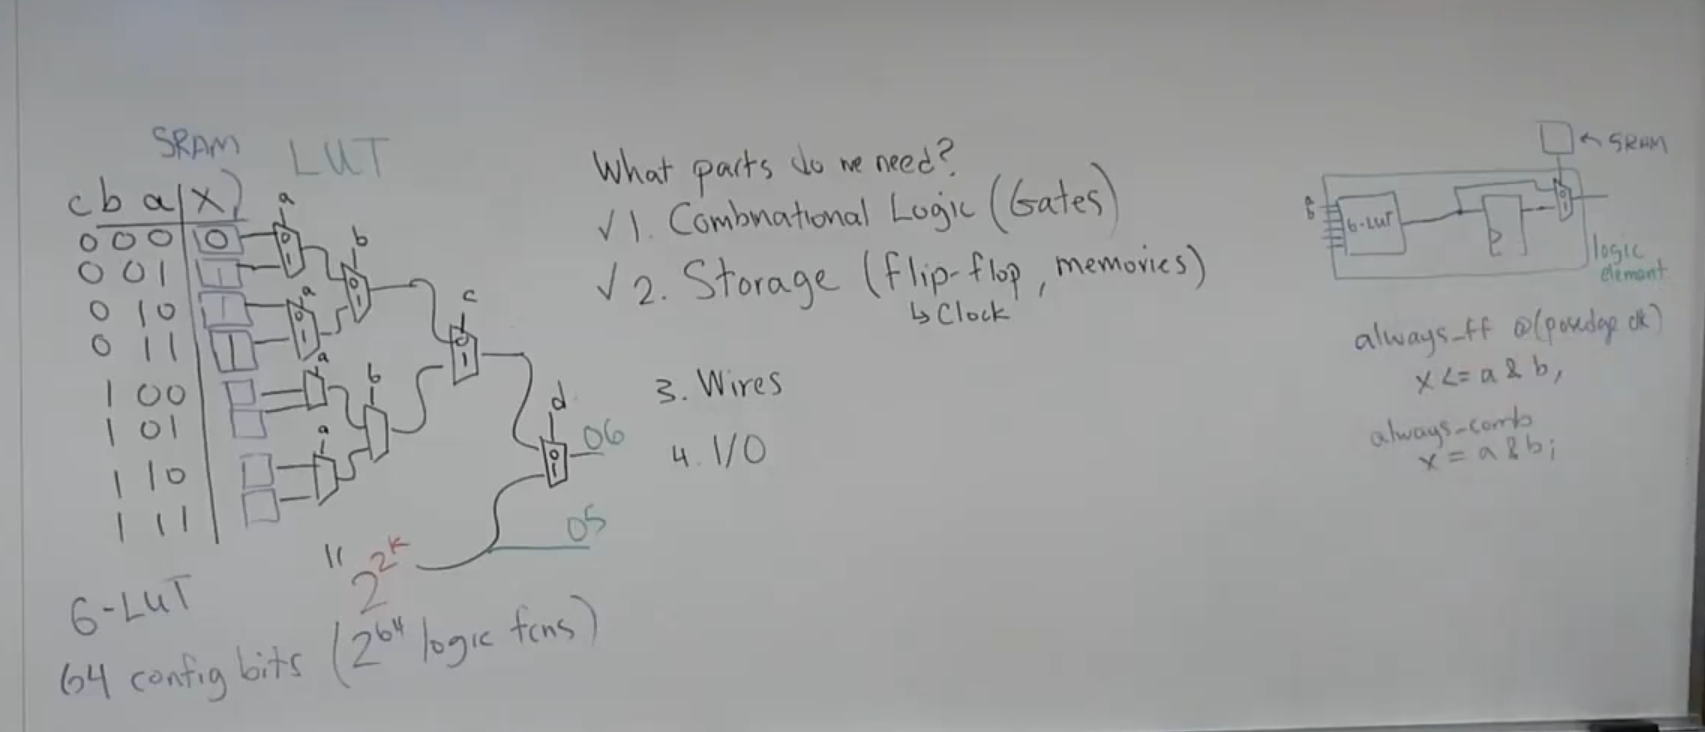 SRAM LUT
c b a x
0 0 0 0
0 0 1 1
0 1 0 1
0 1 1 1
1 0 0
1 0 1
1 1 0
1 1 1
a
a
a
a
b
b
c
d
0 1
0 1
0 1
0 1
0 1
0 1
O6
O5
"
2^2^k
6-LUT
64 config bits (2^64 logic fcns)
What parts do we need?
√ 1. Combnational Logic (Gates)
√ 2. Storage (flip-flop, memories)
↳ Clock
3. Wires
4. I/O
← SRAM
a
b
6-LUT
0 1
logic
element
always_ff @(posedge clk)
x <= a & b;
always_comb
x = a & b;